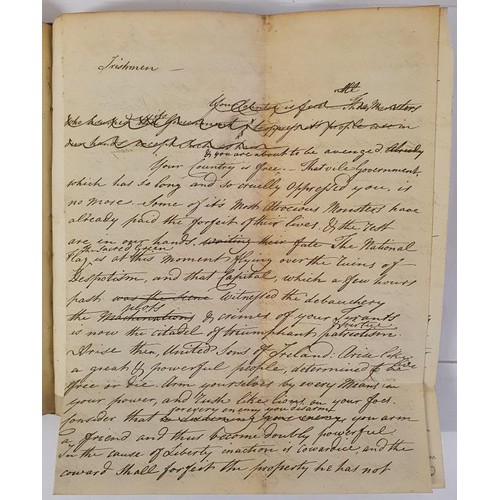 Irishmen —
Your Country is free. — That vile Government,
which has so long and so cruelly oppressed you, is
no more — Some of it's Most Atrocious Monsters have
already paid the forfeit of their lives, & the rest
are in our hands. waiting their fate The National
the Sacred Green
Flag, is at this Moment flying over the ruins of
Despotism, and that Capital, which a few hours
past was the scene witnessed the debauchery
plots
the Machinations & crimes of your Tyrants
is now the citadel of triumphant patriotism
Arise then, United Sons of Ireland: Arise like
a great & powerful people, determined to live
free or die. Arm yourselves by every Means in
your power, and rush like lions on your foes.
for every enemy you disarm
Consider that you arm
a friend and thus become doubly powerful
In the cause of Liberty inaction is cowardice, and the
coward shall forfeit the property he has not